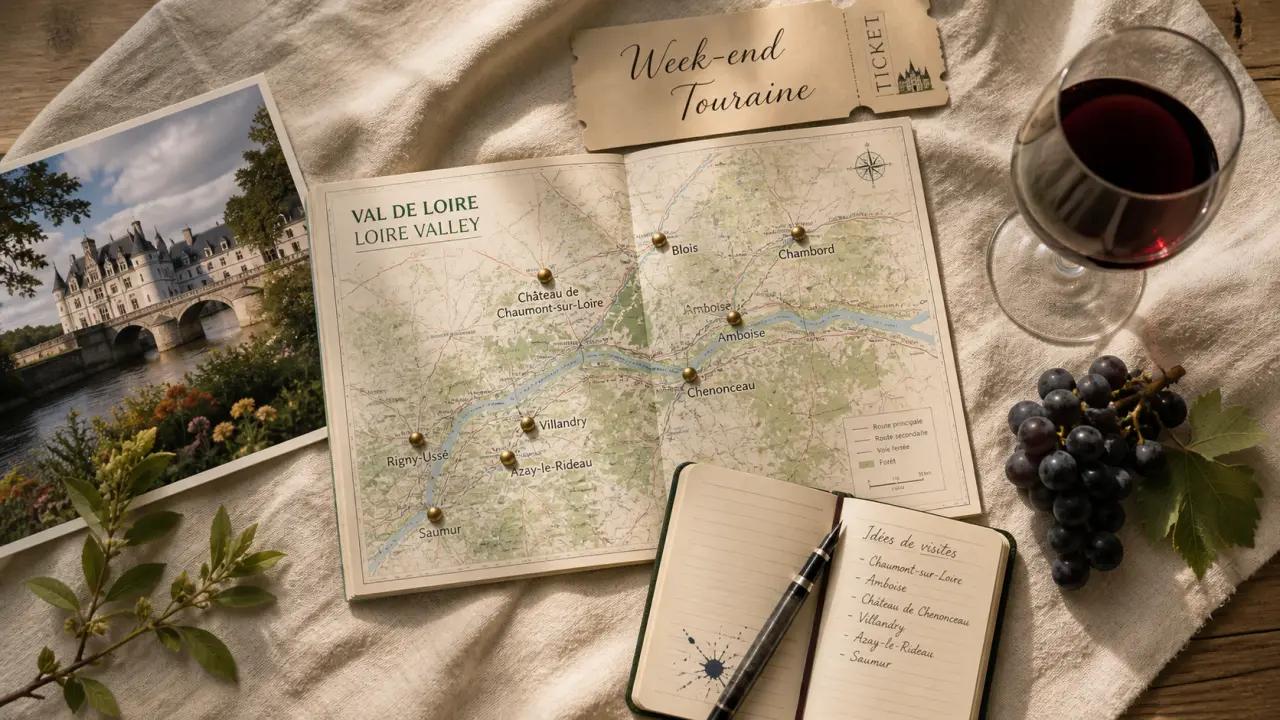 Week-end
Touraine
TICKET
VAL DE LOIRE
LOIRE VALLEY
Blois
Chambord
Château de
Chaumont-sur-Loire
Amboise
Amboise
Chenonceau
Villandry
Rigny-Ussé
Azay-le-Rideau
Saumur
Route principale
Route secondaire
Voie ferrée
Forêt
Idées de visites
- Chaumont-sur-Loire
- Amboise
- Château de Chenonceau
- Villandry
- Azay-le-Rideau
- Saumur